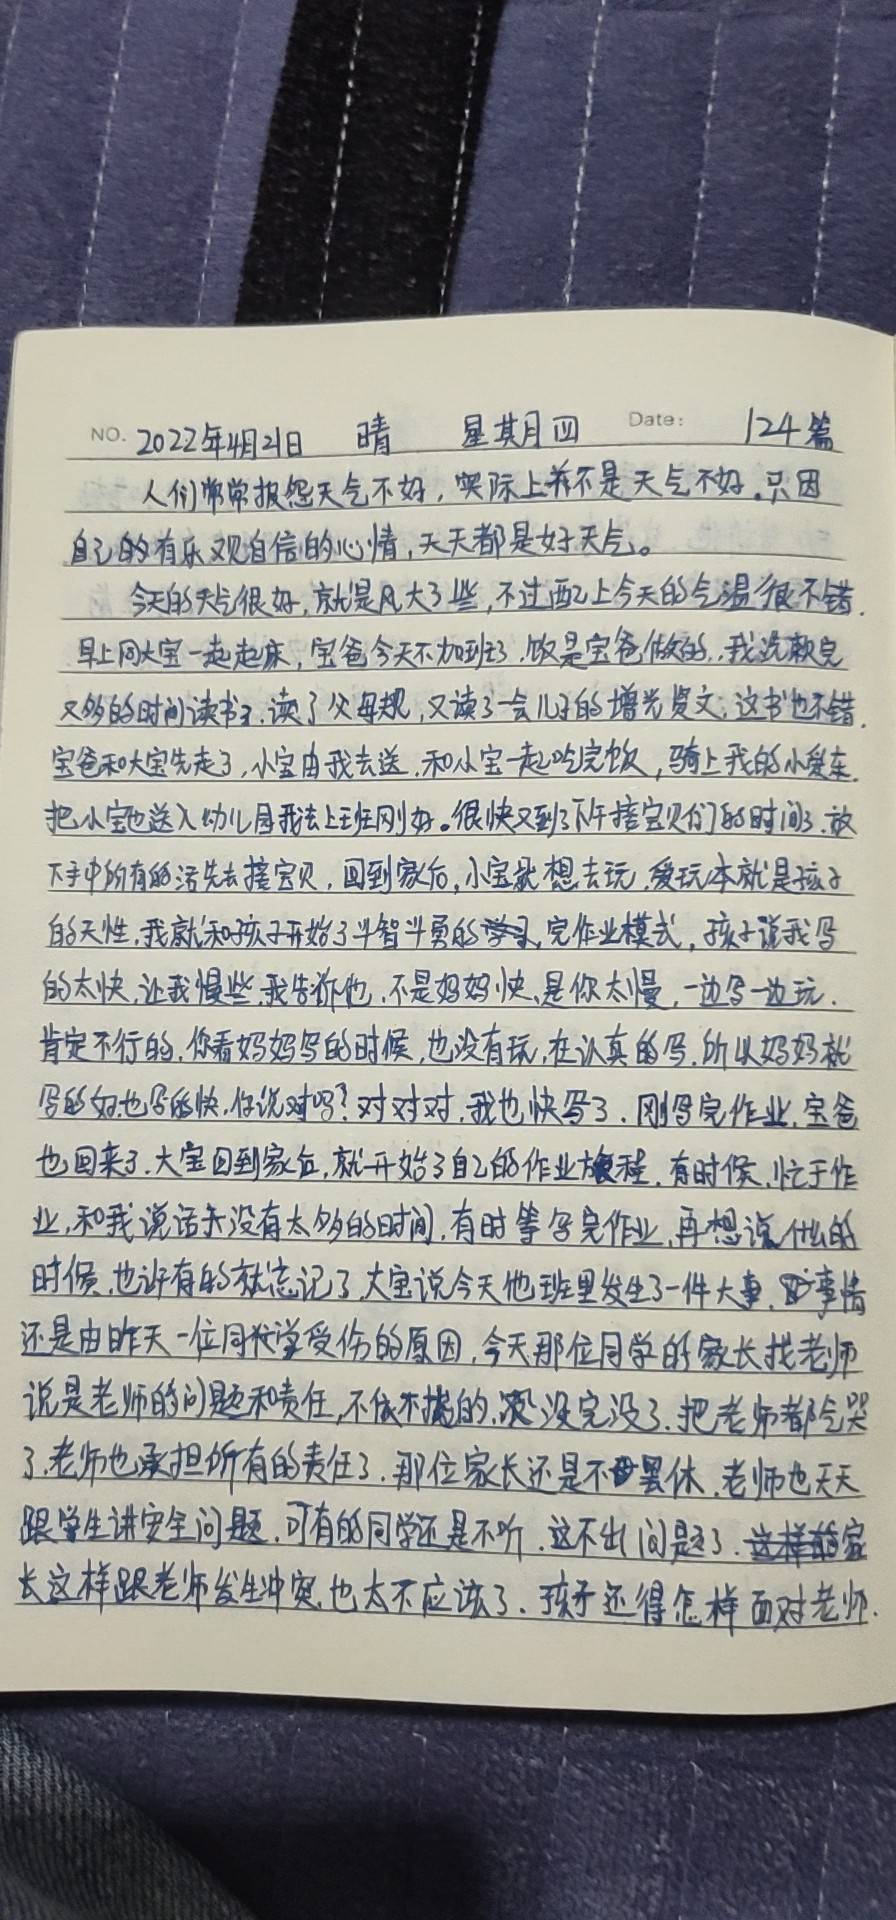 NO. 2022年4月21日 晴 星期四 Date: 124篇
人们常常报怨天气不好，实际上并不是天气不好。只因
自己的有乐观自信的心情，天天都是好天气。
今天的天气很好，就是风大了些，不过配上今天的气温很不错.
早上同大宝一起起床，宝爸今天不加班了.饭是宝爸做的.我洗漱完
又多的时间读书了.读了父母规，又读了一会儿子的增光贤文，这书也不错.
宝爸和大宝先走了，小宝由我去送.和小宝一起吃完饭，骑上我的小爱车.
把小宝也送入幼儿园我去上班刚好。很快又到了下午接宝贝们的时间了.放
下手中所有的活先去接宝贝，回到家后，小宝就想去玩.爱玩本就是孩子
的天性，我就和孩子开始了斗智斗勇的学习完作业模式，孩子说我写
的太快，让我慢些.我告诉他，不是妈妈快，是你太慢，一边写一边玩.
肯定不行的，你看妈妈写的时候，也没有玩，在认真的写.所以妈妈就
写的好也写的快，你说对吗？对对对，我也快写了.刚写完作业，宝爸
也回来了.大宝回到家后，就开始了自己的作业旅程.有时候，忙于作
业，和我说话来没有太多的时间，有时等写完作业，再想说什么的
时候，也许有的就忘记了.大宝说今天他班里发生了一件大事，事情
还是由昨天一位同学受伤的原因，今天那位同学的家长找老师
说是老师的问题和责任，不依不挠的，没没完没了.把老师都气哭
了.老师也承担所有的责任了.那位家长还是不罢休.老师也天天
跟学生讲安全问题，可有的同学还是不听.这不出问题了.这样的家
长这样跟老师发生冲突，也太不应该了.孩子还得怎样面对老师.